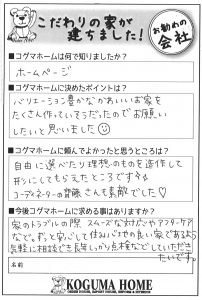 こだわりの家が
建ちました！
お勧めの
会社
■コグマホームは何で知りましたか？
ホームページ
■コグマホームに決めたポイントは？
バリエーション豊かなかわいいお家を
たくさん作っていそうだったのでお願い
したいと思いました
■コグマホームに頼んでよかったと思うところは？
自由に選べたり理想のものを造作して
形にしてもらえたところですかね
コーディネーターの齊藤さんも素敵でした♡
■今後コグマホームに求める事はありますか？
家のトラブルの際 スムーズな対応やアフターケア
など。ずっと安心して住みつづけの良い家であるよう
気軽に相談でき長年しっかり点検などしていただき
たいです。
名前
KOGUMA HOME